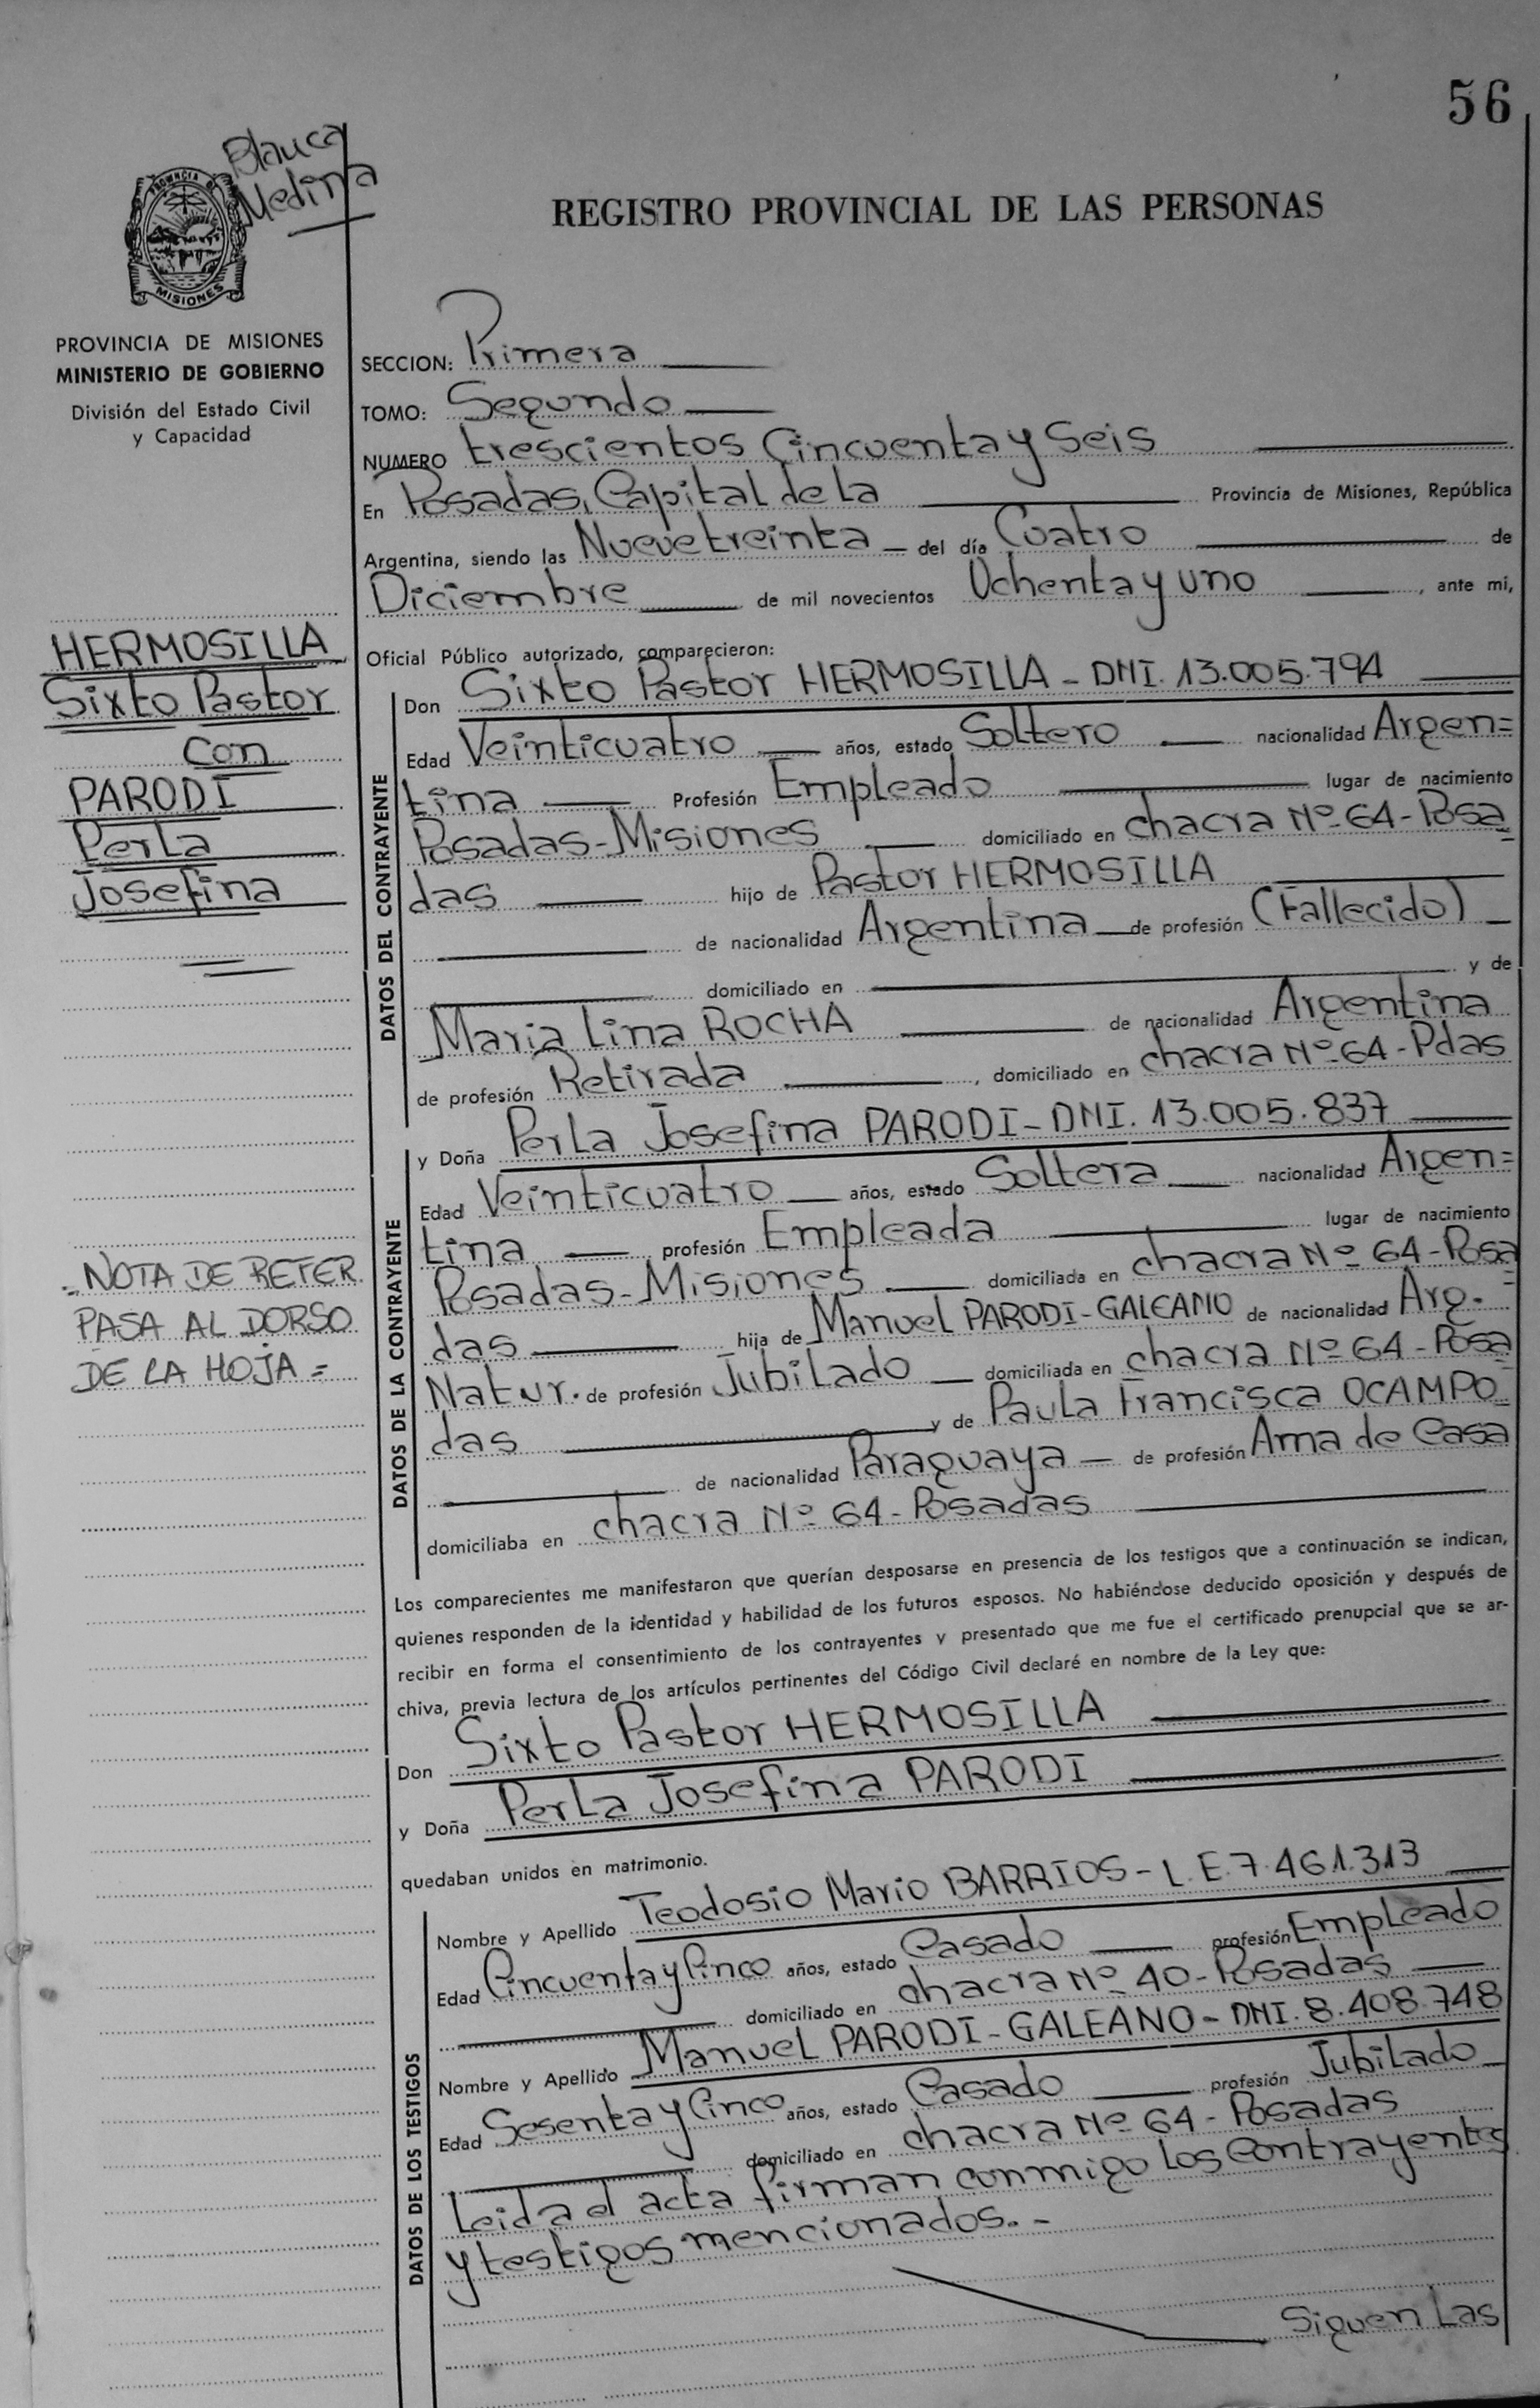 56
Blanca
Medina
PROVINCIA DE
MISIONES
REGISTRO PROVINCIAL DE LAS PERSONAS
PROVINCIA DE MISIONES
MINISTERIO DE GOBIERNO
División del Estado Civil
y Capacidad
SECCION: Primera
TOMO: Segundo
NUMERO trescientos Cincuenta y Seis
En Posadas, Capital de La Provincia de Misiones, República
Argentina, siendo las Nueve treinta del día Cuatro de
Diciembre de mil novecientos Ochenta y uno, ante mi,
Oficial Público autorizado, comparecieron:
HERMOSILLA
Sixto Pastor
con
PARODI
Perla
Josefina
DATOS DEL CONTRAYENTE
Don Sixto Pastor HERMOSILLA - DNI. 13.005.794
Edad Veinticuatro años, estado Soltero nacionalidad Argen=
tina Profesión Empleado lugar de nacimiento
Posadas - Misiones domiciliado en chacra Nº 64 - Posa
das hijo de Pastor HERMOSILLA
de nacionalidad Argentina de profesión (Fallecido)
domiciliado en y de
Maria Lina ROCHA de nacionalidad Argentina
de profesión Retirada, domiciliado en chacra Nº 64 - Pdas
DATOS DE LA CONTRAYENTE
y Doña Perla Josefina PARODI - DNI. 13.005.837
Edad Veinticuatro años, estado Soltera nacionalidad Argen=
tina profesión Empleada lugar de nacimiento
Posadas - Misiones domiciliada en chacra Nº 64 - Posa
das hija de Manuel PARODI - GALEANO de nacionalidad Arg.
Natur. de profesión Jubilado domiciliada en chacra Nº 64 - Posa
das y de Paula Francisca OCAMPO
de nacionalidad Paraguaya de profesión Ama de Casa
domiciliaba en chacra Nº 64 - Posadas
NOTA DE REFER
PASA AL DORSO
DE LA HOJA =
Los comparecientes me manifestaron que querían desposarse en presencia de los testigos que a continuación se indican,
quienes responden de la identidad y habilidad de los futuros esposos. No habiéndose deducido oposición y después de
recibir en forma el consentimiento de los contrayentes y presentado que me fue el certificado prenupcial que se ar-
chiva, previa lectura de los artículos pertinentes del Código Civil declaré en nombre de la Ley que:
Don Sixto Pastor HERMOSILLA
y Doña Perla Josefina PARODI
quedaban unidos en matrimonio.
DATOS DE LOS TESTIGOS
Nombre y Apellido Teodosio Mario BARRIOS - L.E. 7.461.313
Edad Cincuenta y Cinco años, estado Casado profesión Empleado
domiciliado en chacra Nº 40 - Posadas
Nombre y Apellido Manuel PARODI - GALEANO - DNI. 8.408.748
Edad Sesenta y Cinco años, estado Casado profesión Jubilado
domiciliado en chacra Nº 64 - Posadas
Leida el acta firman conmigo los Contrayentes
y testigos mencionados. -
Siguen Las